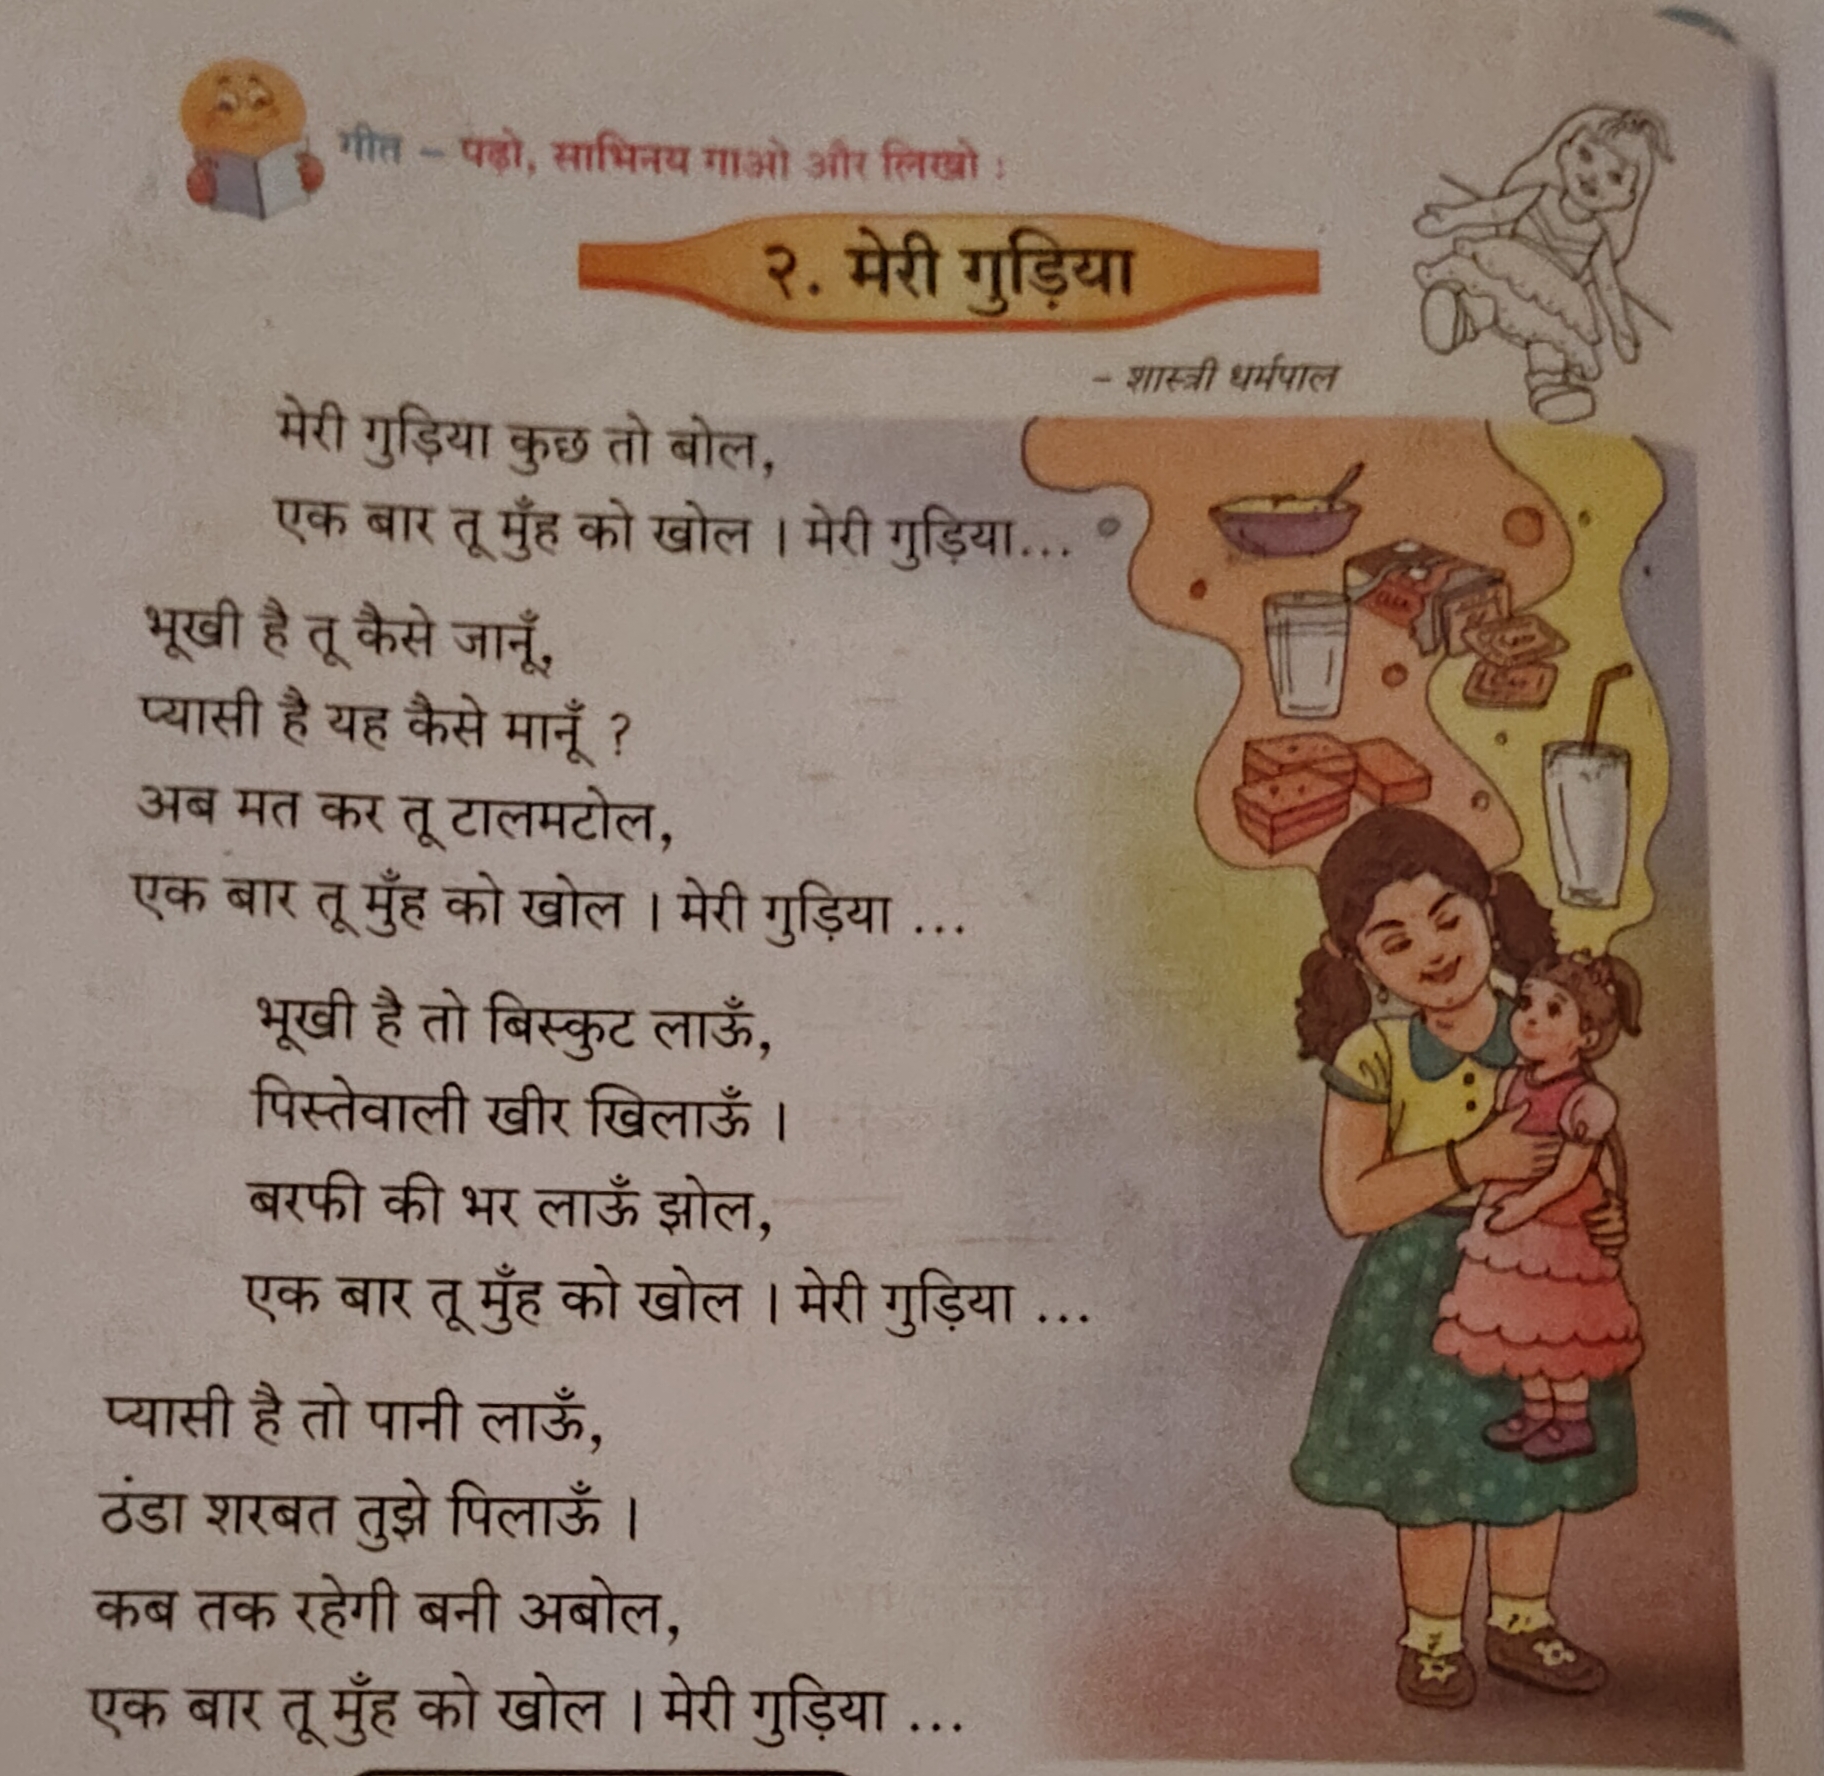 गीत – पढ़ो, साभिनय गाओ और लिखो :
२. मेरी गुड़िया
– शास्त्री धर्मपाल
मेरी गुड़िया कुछ तो बोल,
एक बार तू मुँह को खोल । मेरी गुड़िया...
भूखी है तू कैसे जानूँ,
प्यासी है यह कैसे मानूँ ?
अब मत कर तू टालमटोल,
एक बार तू मुँह को खोल । मेरी गुड़िया ...
भूखी है तो बिस्कुट लाऊँ,
पिस्तेवाली खीर खिलाऊँ ।
बरफी की भर लाऊँ झोल,
एक बार तू मुँह को खोल । मेरी गुड़िया ...
प्यासी है तो पानी लाऊँ,
ठंडा शरबत तुझे पिलाऊँ ।
कब तक रहेगी बनी अबोल,
एक बार तू मुँह को खोल । मेरी गुड़िया ...